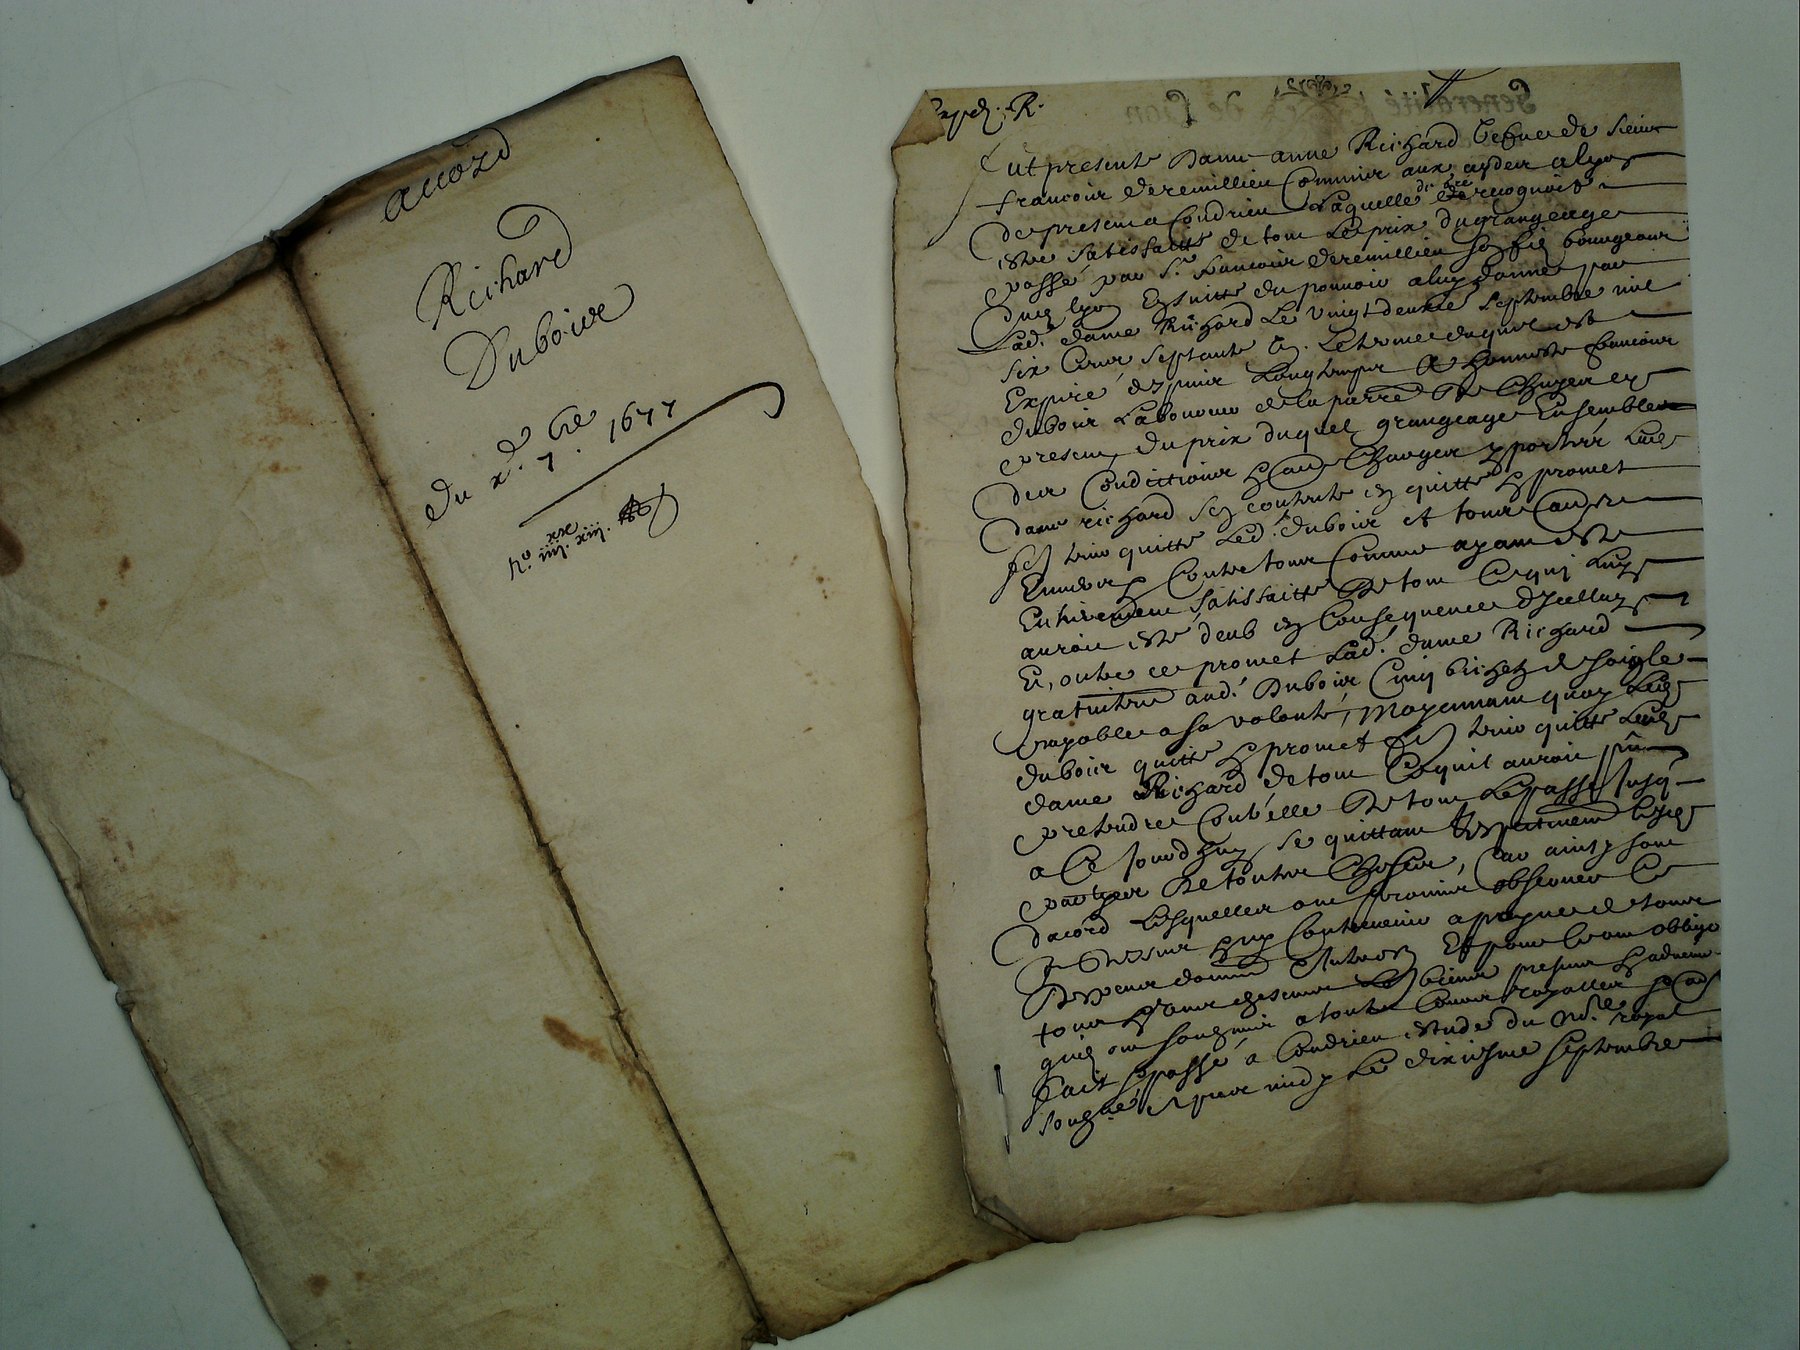 accord
Richard
Duboice
du x.e 7 bre 1677
n.o iiij xx xiij.
Exped. R.
Generalité de Lion
Fut presente Dame anne Richard vefue de sieur
francois deremillieu Commis aux aydes a lyon
de presens a Condrieu Laquelle de gre recognoit
estre satisfaitte de tout Le prix du grangeage
passé par Sr. francois deremillieu son fils bourgeois
dud lyon En suitte du pouuoir a luy donné par
Lad. dame Richard Le vingt deuxe septembre mil
six Cens septante Le terme duquel est
Expiré despuis Longtemps A honneste francois
duboir Laboureur de la parre de Chuyer cy
present, du prix duquel grangeage Ensemble
des Conditions et Charges y portees Lad
dame richard sen contente en quitte et promet
fe tenir quitte Led. duboir et tous autres
Enuers et Contre tous Comme ayant esté
Entierement satisfaitte De tout Ce qui Luy
auroit esté deub en Consequence d'Jcelluy
Et, outre ce promet Lad. dame Richard
gratuitem aud. Duboir Cinq bichetz de soigle
payable a sa volonté, Moyennant quoy Led
duboir quitte et promet fe tenir quitte Lad
dame Richard de tout Ce quil auroit pû
pretendre Contr'elle De tout Le passé Jusq
a Ce Jourdhuy se quittant Respectiuem Lesd
parties De toutes Choses, Car ainsy sont
dacord Lesquelles ont promis obseruer Ce
dessus sans Contreuenir a peyne de tous
Despens dommages Interest Et pour Ce ont obligé
tous et vns chescuns Les biens presens et aduenir
quils ont soubmis a toutes Cours royalles et autres
fait et passé à Condrieu estude du nore royal
soubsné apres midy Le dixiesme septembre